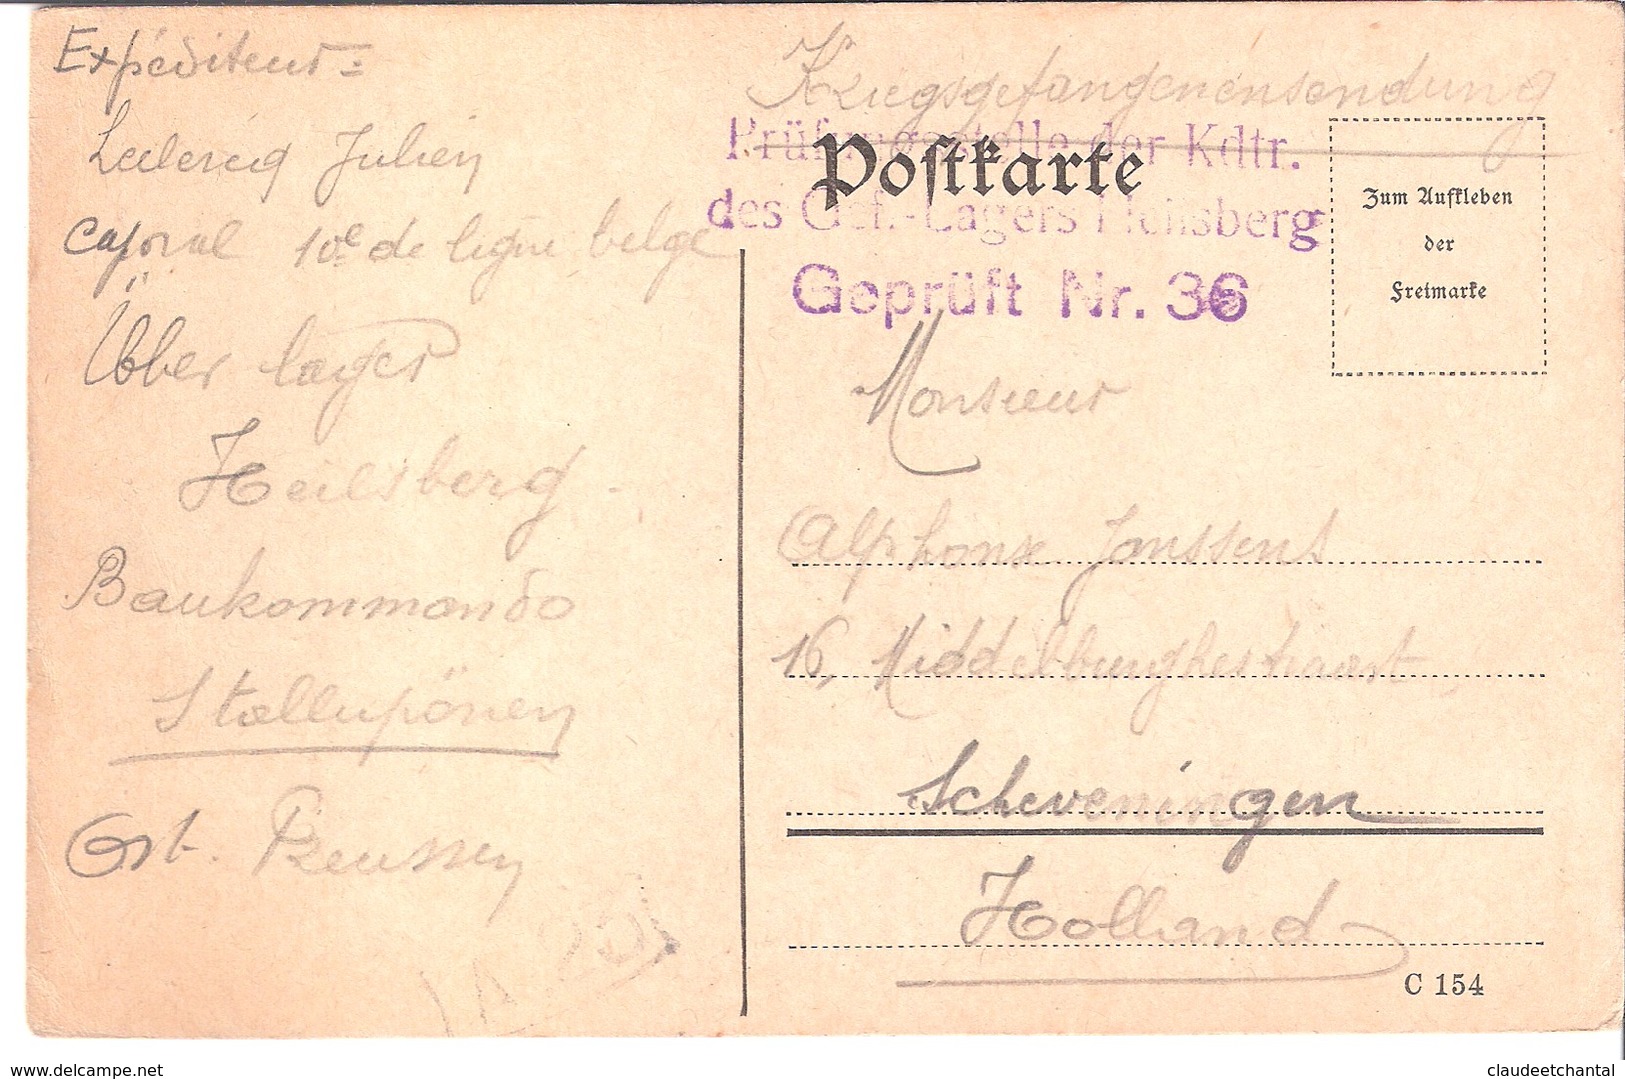 Expéditeur =
Leclercq Julien
Caporal 10e de ligne belge
Über lager
Heilsberg
Baukommando
Stallupönen
Ost. Preussen
Kriegsgefangenensendung
Prüfungsstelle der Kdtr.
Postkarte
des Gef.-Lagers Heilsberg
Geprüft Nr. 36
Zum Aufkleben
der
Freimarke
Monsieur
Alphonse Janssens
16, Middelburghestraat
Scheveningen
Holland
C 154
delcampe.net
claudeetchantal